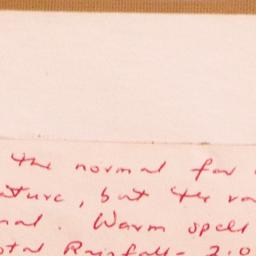 the normal for
ature, but the ra
nal. Warm spell
otal Rainfall - 2.0